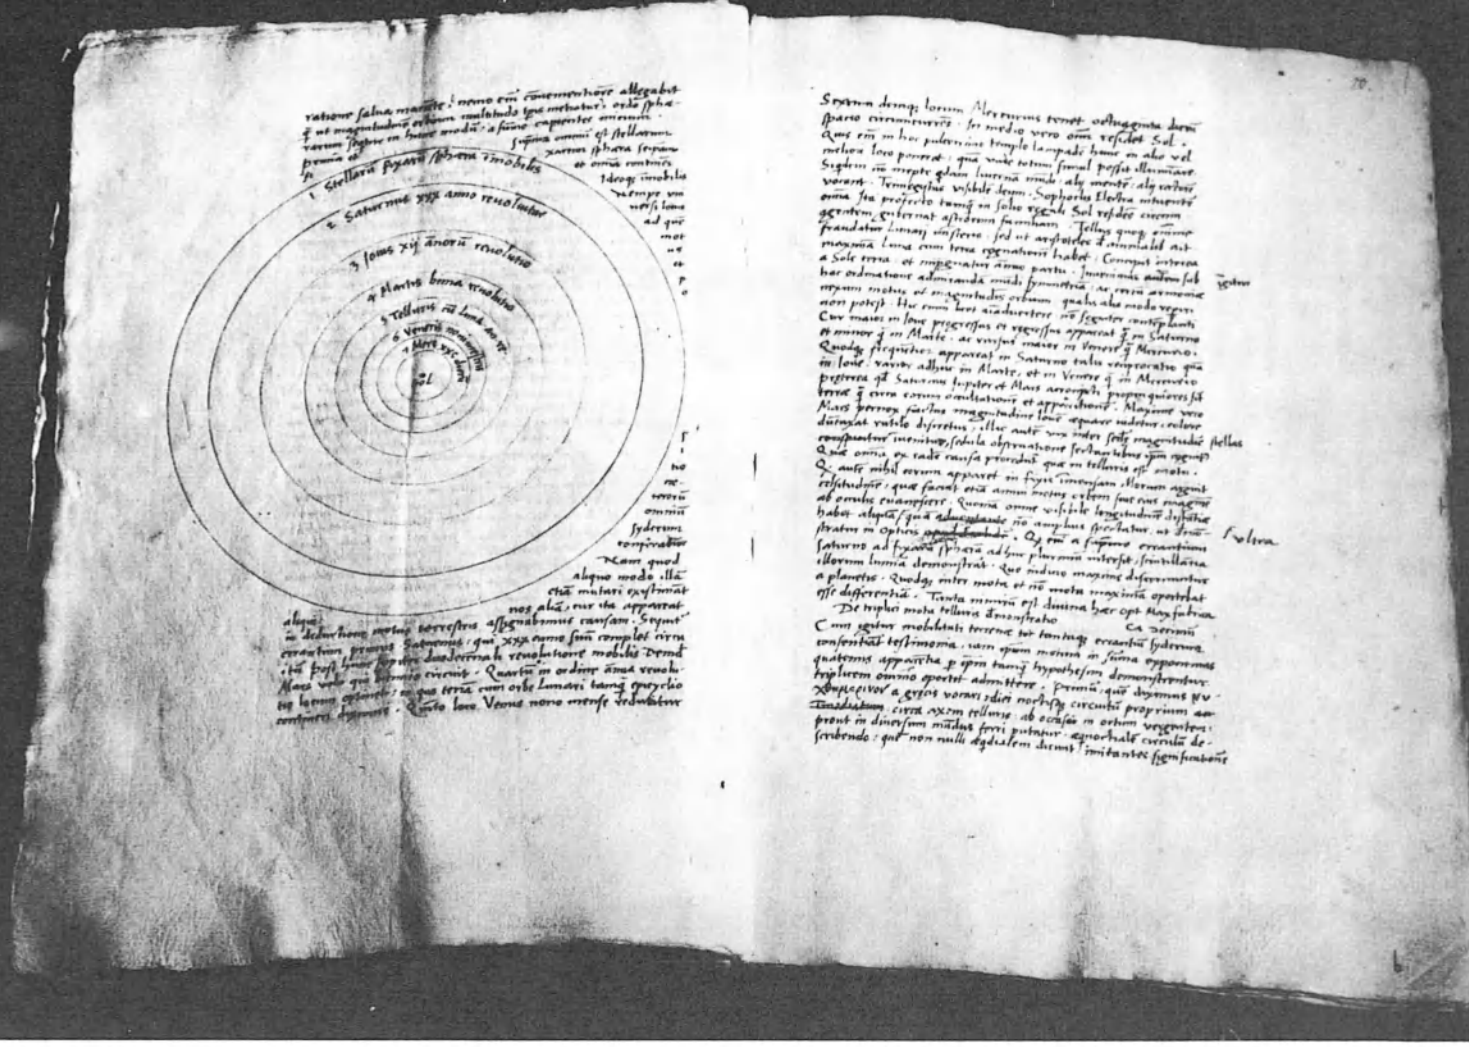 ratione salva manēte: nemo em̄ cōvenientiorē allegabit
q̄ ut magnitudinē orbium multitudo tp̄is metiatur, ordo sphæ-
rarum sequitur in hunc modū: a sum̄o capientes initium.
prima et suprema omniū est stellarum
fixarum sphæra seipsam
et omnia continēs
Ideoq; īmobilis
nempe uni
versi locus
ad quē
mot
us
et
p
o
1 Stellarū fixarū sphæra īmobilis
2 Saturnus xxx anno revolvitur
3 Jovis xij añorū revolutio
4 Martis bima revolutio
5 Telluris cū Luna an. re.
6 Veneris nonimestris
7 Merc xxc dierū
Sol
s
i
tio
ne-
terorū
omniū
syderum
conferatur
Nam quod
aliquo modo illā
etiā mutari existimāt
aliqui: nos aliā, cur ita appareat
in deductione motus terrestris assignabimus causam. Sequit̄
errantium primus Saturnus: qui xxx anno suū complet circu
itū post hunc Jupiter duodecennali revolutione mobilis. Deinde
Mars volv qui biennio circuit. Quartū in ordine añua revolu-
tio locum optinet: in quo terrā cum orbe Lunari tamq̄ epicyclio
contineri diximus. Quinto loco Venus nono mense reducitur
20.
Sextum deniq; locum Mercurius tenet octuaginta dierū
spacio circumcurrēs. In medio vero om̄i residet Sol.
Quis em̄ in hoc pulcerimo templo lampadē hanc in alio vel
meliori loco poneret: quā unde totum simul possit illuminare
Siqdem nō inepte qdam lucernā mūdi: alij mentē: alij rectorē
vocant. Trimegistus visibilē deum: Sophoclis Electra intuentē
omīa. Ita profecto tamq̄ in solio regali Sol residēs circum
agentem gubernat astrorum familiam. Tellus quoq; minime
fraudatur Lunari ministerio: sed ut aristoteles d̄ animalib ait
maximā Luna cum terra cognationē habet. Concipit interea
a Sole terra: et impregnatur annuo partu. Invenimus
igitur
sub
hac ordinatione admirandā mūdi symmetriā: ac certū armoniæ
nexum motus et magnitudinis orbium: qualis alio modo reperiri
non potest. Hic enim licet aīadvertere nō segniter contēplāti
Cur maior in Jove progressus et regressus appareat q̄ in Saturno
et minor q̄ in Marte: ac rursus maior in Venere q̄ Mercurio.
Quodq; frequētior appareat in Saturno talis reciprocatio quā
in Jove: rarior adhuc in Marte, et in Venere q̄ in Mercurio
præterea qd̄ Saturnus Jupiter et Mars acronycti propinquiores sūt
terræ q̄ circa eorum occultationē et apparitionē. Maxime vero
Mars pernox factus magnitudine Jovē æquare videtur, colore
dūtaxat rutilo discretus: illic autē vix inter secūdæ magnitudīs stellas
invenitur, sedula observatione sectantibus ipm̄ cognitꝰ
Quæ omnia ex eadē causa procedūt quæ in telluris est motu.
Qd̄ autē nihil eorum apparet in fixis īmensam illorum arguit
celsitudinē, quæ faciat etiā annui motus orbem sive eius imaginē
ab oculis evanescere. Quoniā omne visibile longitudinē distātiæ
habet aliquā, ultra quā nō amplius spectatur, ut demō-
stratur in Opticis. Qd̄ em̄ a supremo errantium
Saturno ad fixarū sphærā adhuc plurimū intersit, scintillātia
illorum lumina demonstrāt. Quo indicio maxime discernuntur
a planetis. Quodq; inter mota et nō mota maximā oportebat
esse differentiā. Tanta nimirū est divina hæc Opt. Max. fabrica
De triplici motu telluris demonstratio Ca. decimū
Cum igitur mobilitati terrenæ tot tantaq; errantiū syderum
consentiāt testimonia: iam ipsum motum in sum̄a exponemus
quatenus apparētia p ipm̄ tamq̄ hypothesim demonstrentur.
triplicem omnīo oportet admittere. Primū, quē diximus νυ-
χθημερινον a græcis vocari: diei noctisq; circuitū proprium
circa axem telluris: ab occasu in ortum vergentem:
prout in diversum mūdus ferri putatur æquinoctialē circulū de-
scribendo: quē non nulli æqdialem dicunt, imitantes significationē
b